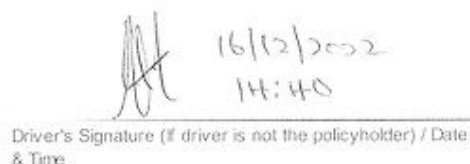 16/12/2022
14:40
Driver's Signature (if driver is not the policyholder) / Date
& Time